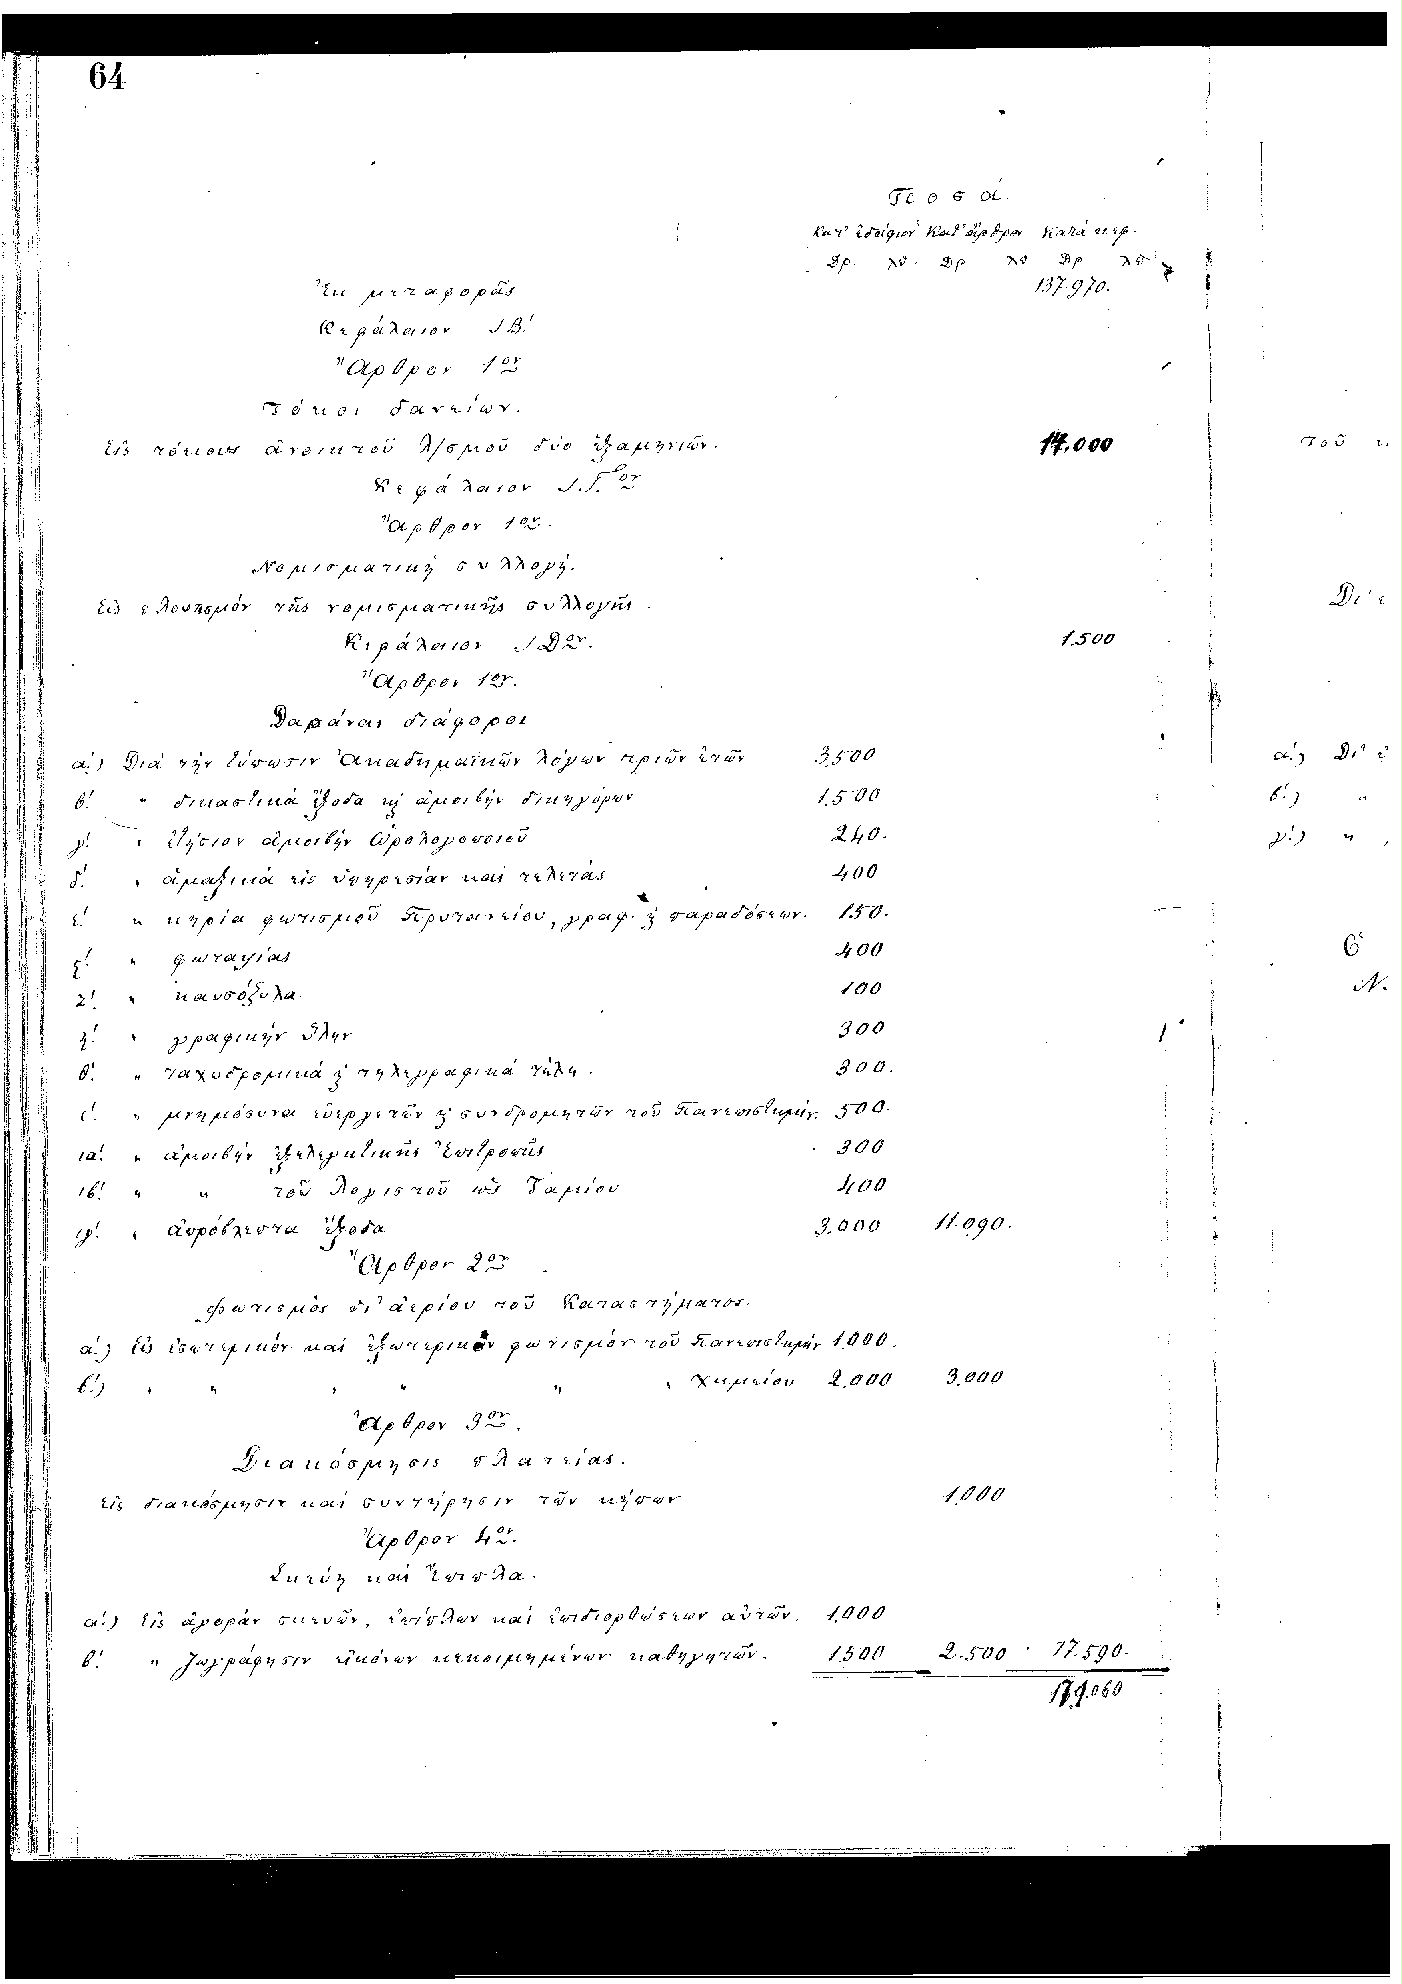 64
Ποσά.
Κατ' ἐδάφιον Καθ' ἄρθρον Κατά κεφ.
Δρ. λ. Δρ λ Δρ λ
Ἐκ μεταφορᾶς 137.970.
Κεφάλαιον ΙΒ'.
Ἄρθρον 1ον
Τόκοι δανείων.
Εἰς τόκους ἀνοικτοῦ λ/σμοῦ δύο ἑξαμηνιῶν. 000
Κεφάλαιον ΙΓ.ον
Ἄρθρον 1ον.
Νομισματική συλλογή.
Εἰς πλουτισμόν τῆς νομισματικῆς συλλογῆς.
Κεφάλαιον ΙΔον. 1.500
Ἄρθρον 1ον.
Δαπάναι διάφοροι
ά.) Διά τήν τύπωσιν Ἀκαδημαϊκῶν λόγων τριῶν ἐτῶν 3.500
β'. " δικαστικά ἔξοδα ϗ ἀμοιβήν δικηγόρων 1.500
γ'. " ἐτήσιον ἀμοιβήν ὡρολογοποιοῦ 240.
δ'. " ἁμαξικά εἰς ὑπηρεσίαν καί τελετάς 400
ε'. " κηρία φωτισμοῦ Πρυτανείου, γραφ. ϗ παραδόσεων. 150.
ϛ'. " φωταψίας 400
ζ'. " καυσόξυλα. 100
η'. " γραφικήν ὕλην 300
θ'. " ταχυδρομικά ϗ τηλεγραφικά τέλη. 300.
ι'. " μνημόσυνα εὐεργετῶν ϗ συνδρομητῶν τοῦ Πανεπιστημίου. 500.
ια'. " ἀμοιβήν ἐξελεγκτικῆς Ἐπιτροπῆς 300
ιβ'. " " τοῦ λογιστοῦ ὡς Ταμίου 400
ιγ'. " ἀπρόβλεπτα ἔξοδα 3.000 11.090.
Ἄρθρον 2ον
Φωτισμός δι' ἀερίου τοῦ Καταστήματος.
ά.) Εἰς ἐσωτερικόν καί ἐξωτερικόν φωτισμόν τοῦ Πανεπιστημίου 1.000.
β'.) " " " " " " χημείου 2.000 3.000
Ἄρθρον 3ον.
Διακόσμησις πλατείας.
Εἰς διακόσμησιν καί συντήρησιν τῶν κήπων 1.000
Ἄρθρον 4ον.
Σκεύη καί ἔπιπλα.
ά.) Εἰς ἀγοράν σκευῶν, ἐπίπλων καί ἐπιδιορθώσεων αὐτῶν. 1.000
β'. " ζωγράφησιν εἰκόνων κεκοιμημένων καθηγητῶν. 1500 2.500 17.590.